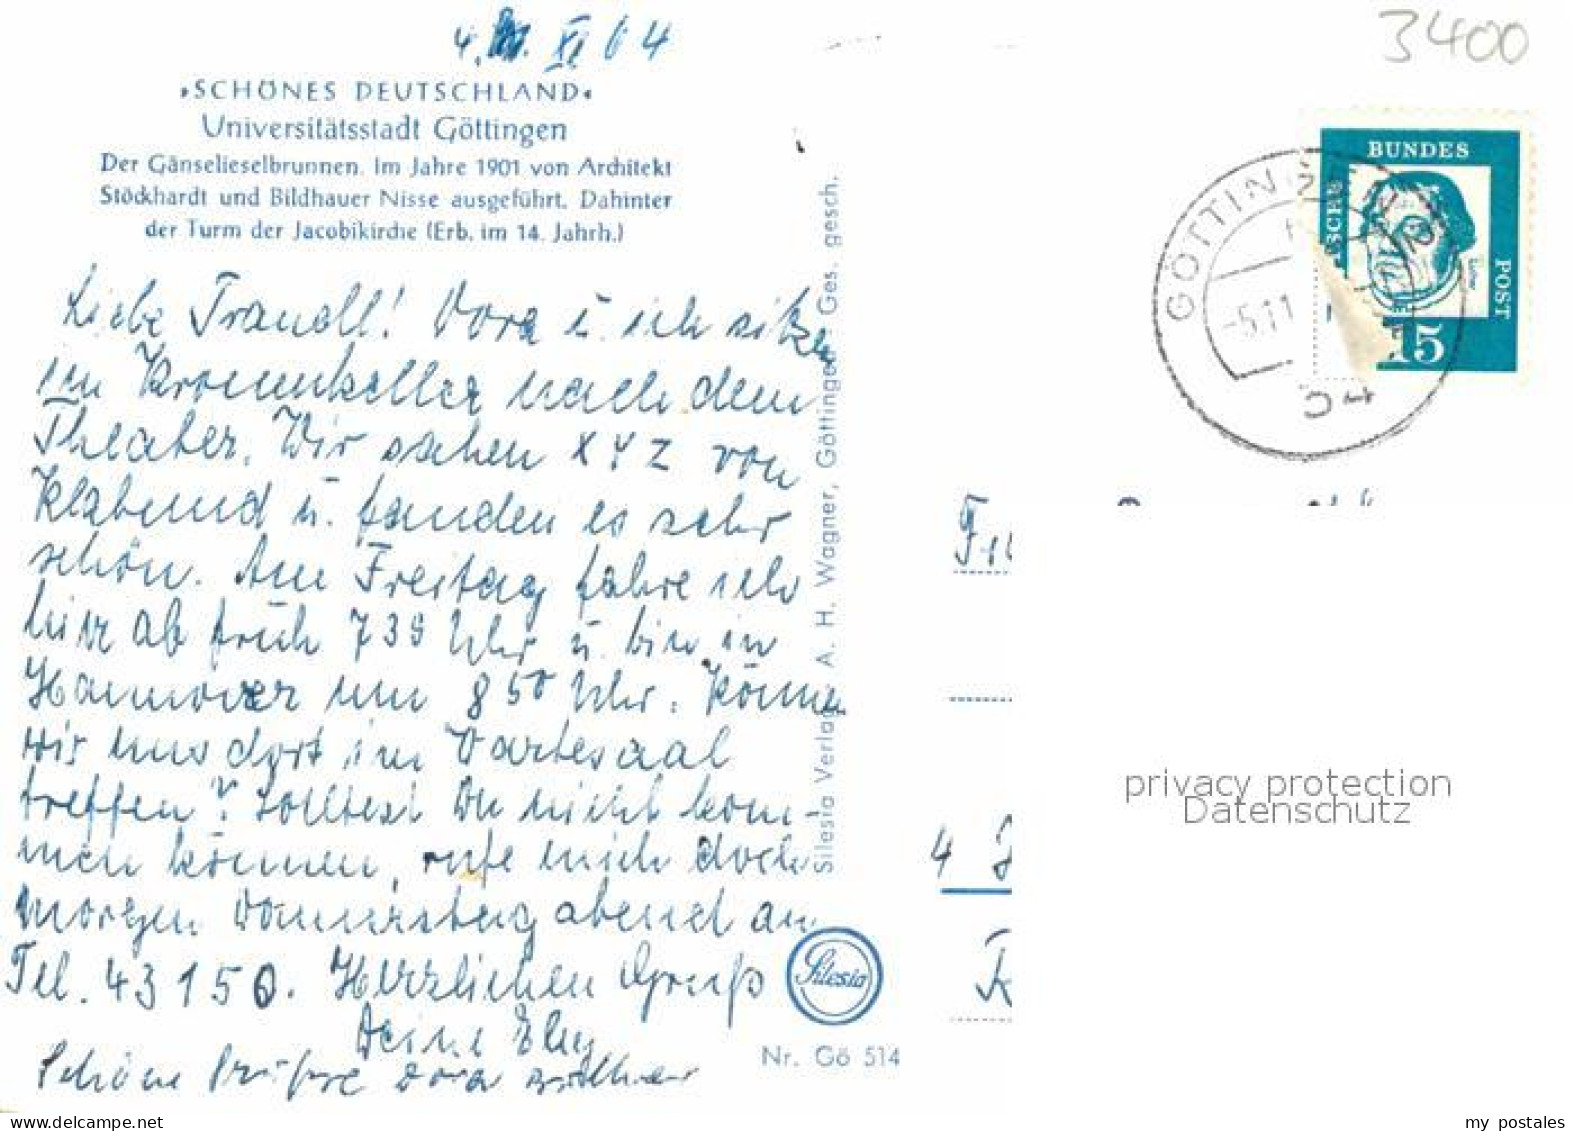 4. XI 64
3400
»SCHÖNES DEUTSCHLAND«
Universitätsstadt Göttingen
Der Gänselieselbrunnen. Im Jahre 1901 von Architekt
Stöckhardt und Bildhauer Nisse ausgeführt. Dahinter
der Turm der Jacobikirche (Erb. im 14. Jahrh.)
Liebe Traudl! Dora u. ich sitzen
im Kronenkeller nach dem
Theater. Wir sahen XYZ von
Klabund u. fanden es sehr
schön. Am Freitag fahre ich
hier ab früh 7 39 Uhr u. bin in
Hannover um 8 50 Uhr. Können
wir uns dort im Wartesaal
treffen? Solltest Du nicht kom-
men können, rufe mich doch
morgen Donnerstag abend an
Tel. 43150. Herzlichen Gruß
Deine
Schöne Grüße Dora
Silesia Verlag A. H. Wagner, Göttingen Ges. gesch.
Silesia
Nr. Gö 514
BUNDES
POST
Luther
15
GÖTTINGEN 2
-5.11
34
4
privacy protection
Datenschutz
www.delcampe.net
my postales